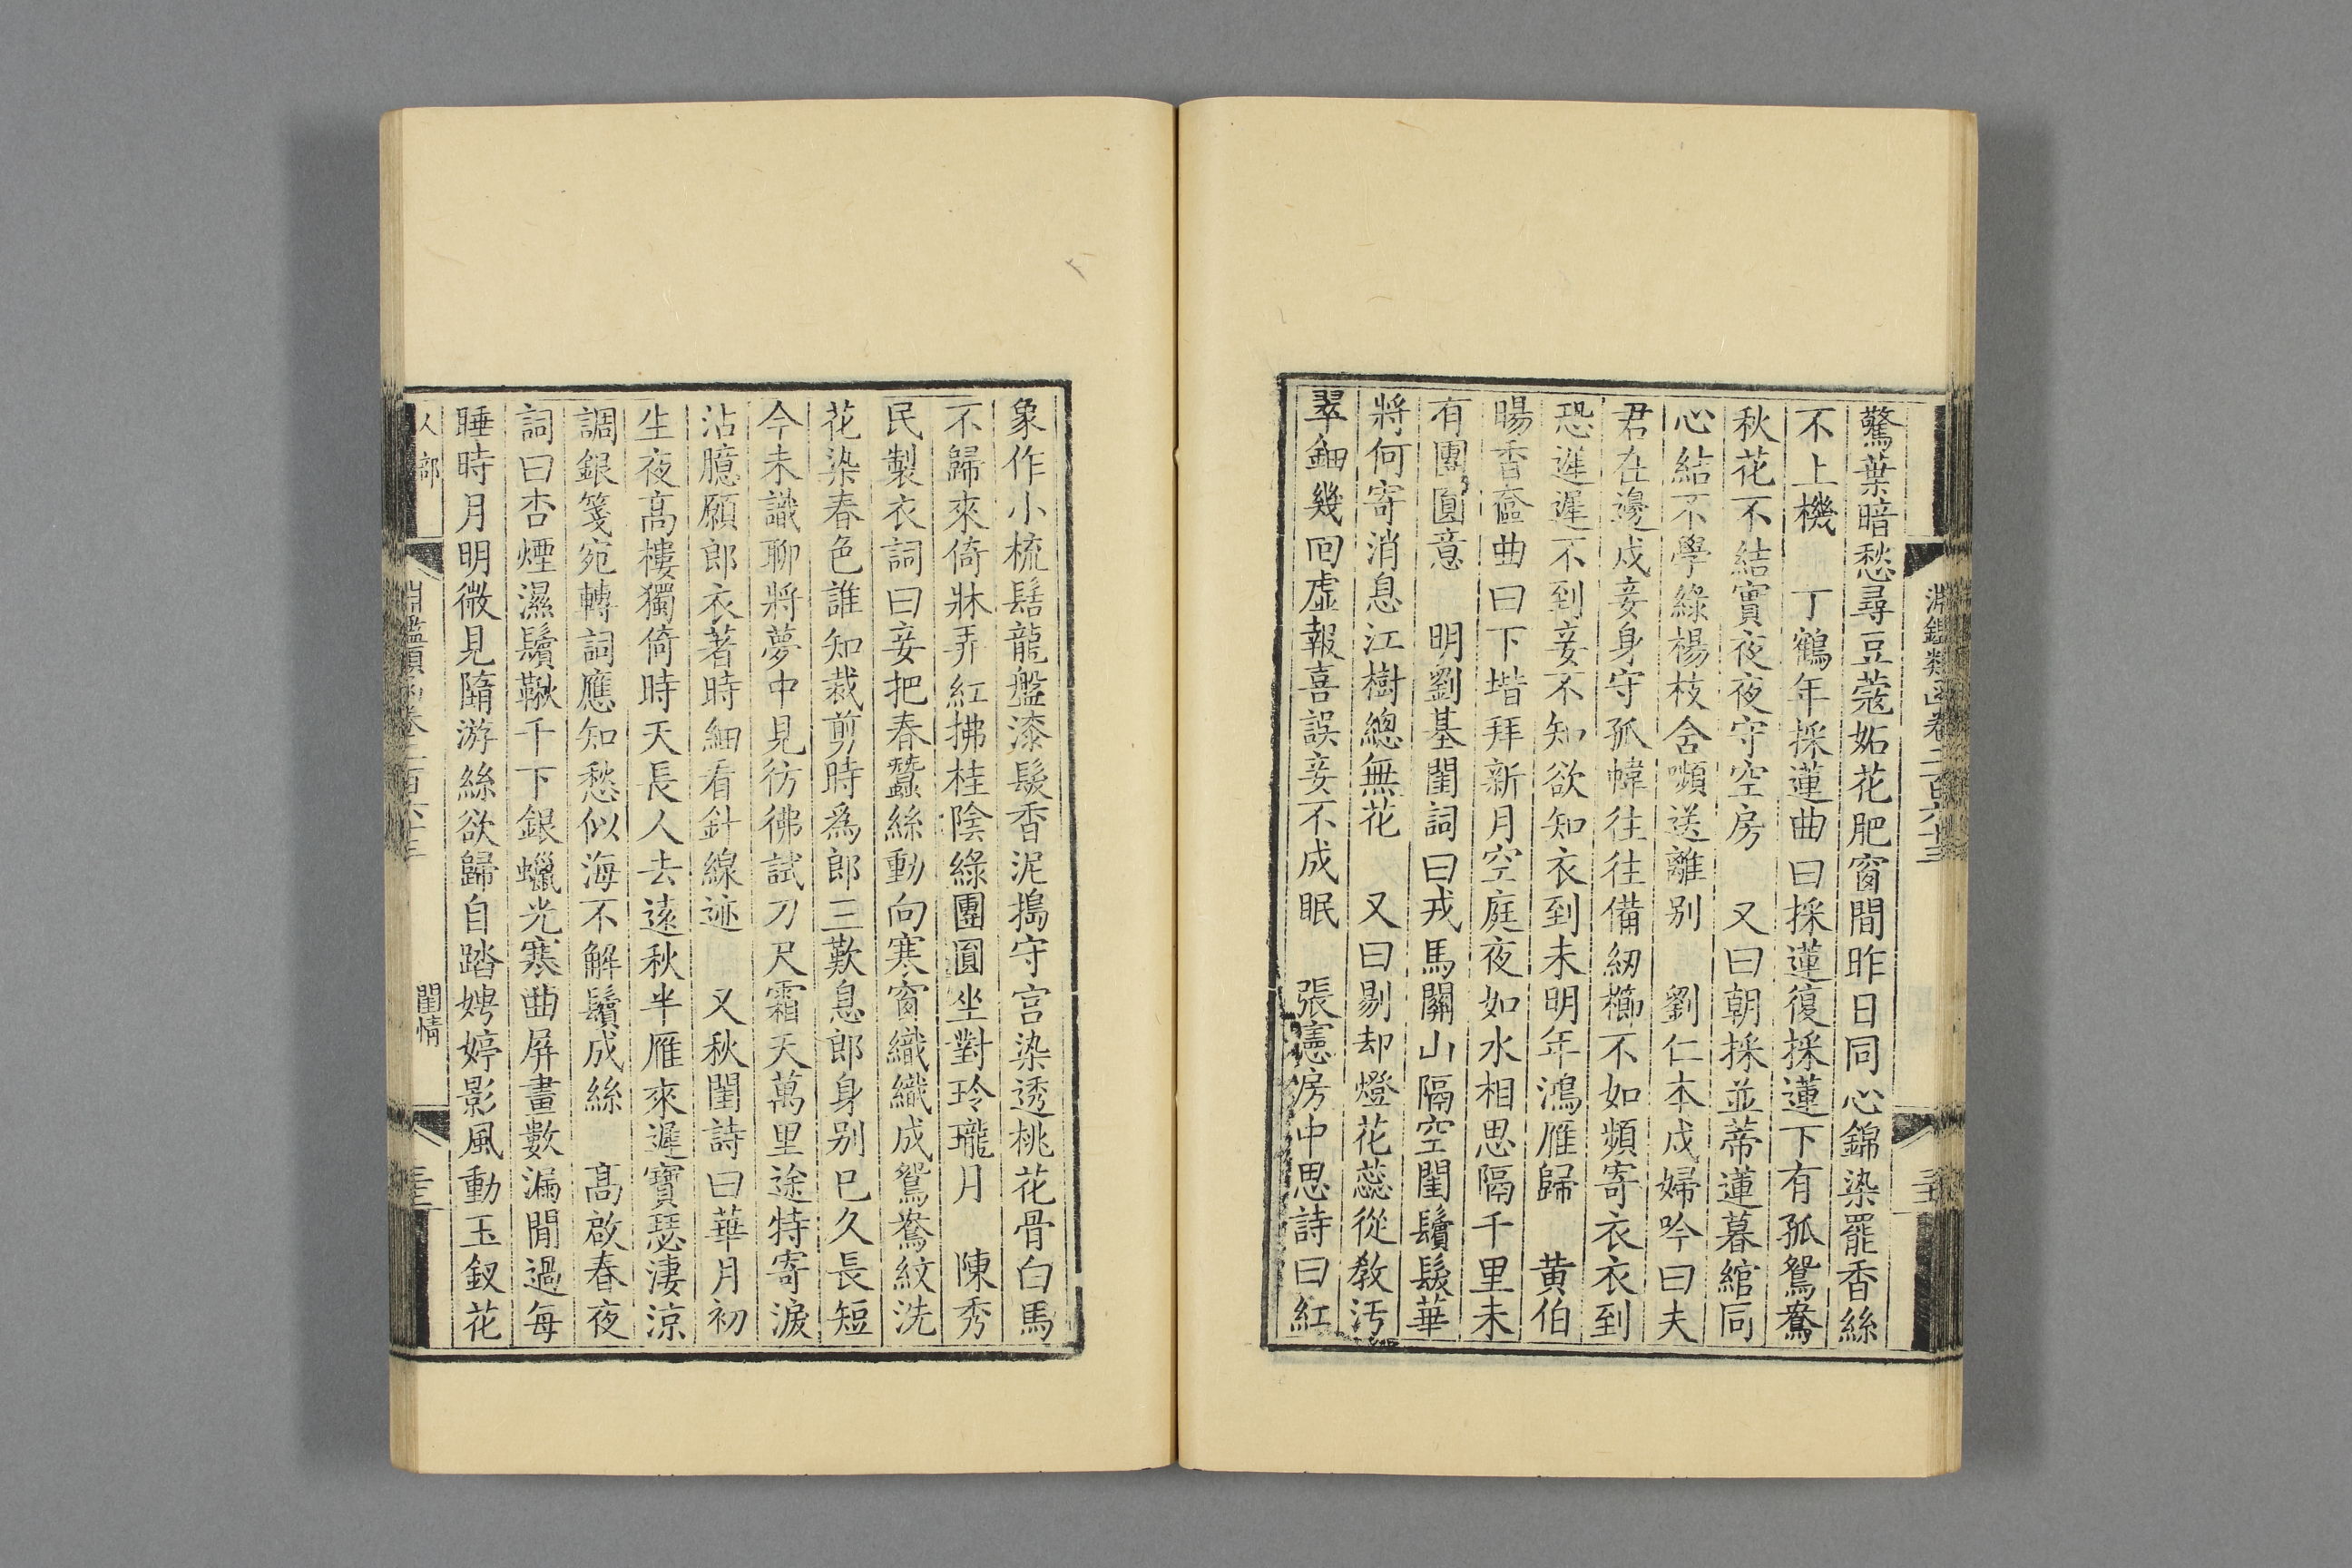 驚葉暗愁尋豆蔻妬花肥窗間昨日同心錦染罷香絲
不上機　丁鶴年採蓮曲曰採蓮復採蓮下有孤鴛鴦
秋花不結實夜夜守空房　又曰朝採並蒂蓮暮綰同
心結不學綠楊枝含嚬送離别　劉仁本戍婦吟曰夫
君在邊戍妾身守孤幃往往備紉櫛不如頻寄衣衣到
恐遲遲不到妾不知欲知衣到未明年鴻雁歸　黄伯
暘香奩曲曰下堦拜新月空庭夜如水相思隔千里未
有團圓意　明劉基閨詞曰戎馬關山隔空閨鬢髮華
將何寄消息江樹總無花　又曰剔却燈花蕊從教汚
翠鈿幾回虛報喜誤妾不成眠　張憲房中思詩曰紅
淵鑑類函卷二百六十三
象作小梳髻龍盤漆髮香泥搗守宫染透桃花骨白馬
不歸來倚牀弄紅拂桂陰綠團圓坐對玲瓏月　陳秀
民製衣詞曰妾把春蠶絲動向寒窗織織成鴛鴦紋洗
花染春色誰知裁剪時爲郎三歎息郎身别巳久長短
今未識聊將夢中見彷彿試刀尺霜天萬里途特寄淚
沾臆願郎衣著時細看針線迹　又秋閨詩曰華月初
生夜高樓獨倚時天長人去遠秋半雁來遲寶瑟淒涼
調銀箋宛轉詞應知愁似海不解鬢成絲　高啟春夜
詞曰杏煙濕鬚鞦千下銀蠟光寒曲屏畫數漏聞過每
睡時月明微見隋游絲欲歸自踏娉婷影風動玉釵花
人部
淵鑑類函卷二百六十三
閨情